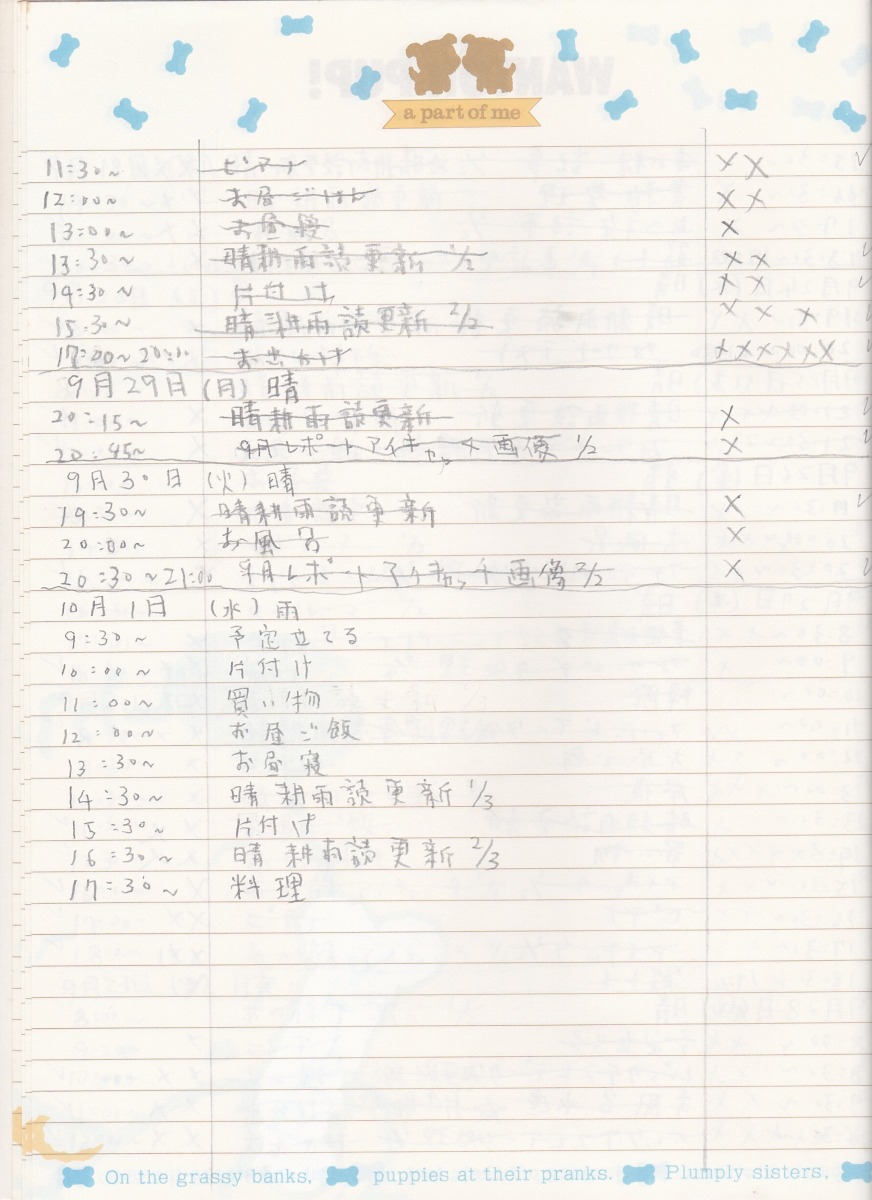 a part of me
11:30~ ピアノ ××
12:00~ お昼ごはん ××
13:00~ お昼寝 ×
13:30~ 晴耕雨読更新 1/2 ××
14:30~ 片付け ××
15:30~ 晴耕雨読更新 2/2 ×××
17:00~20:00 お出かけ ××××××
9月29日(月)晴
20:15~ 晴耕雨読更新 ×
20:45~ 9月レポートアイキャッチ画像 1/2 ×
9月30日(火)晴
19:30~ 晴耕雨読更新 ×
20:00~ お風呂 ×
20:30~21:00 9月レポートアイキャッチ画像 2/2 ×
10月1日(水)雨
9:30~ 予定立てる
10:00~ 片付け
11:00~ 買い物
12:00~ お昼ご飯
13:30~ お昼寝
14:30~ 晴耕雨読更新 1/3
15:30~ 片付け
16:30~ 晴耕雨読更新 2/3
17:30~ 料理
On the grassy banks, puppies at their pranks. Plumply sisters,